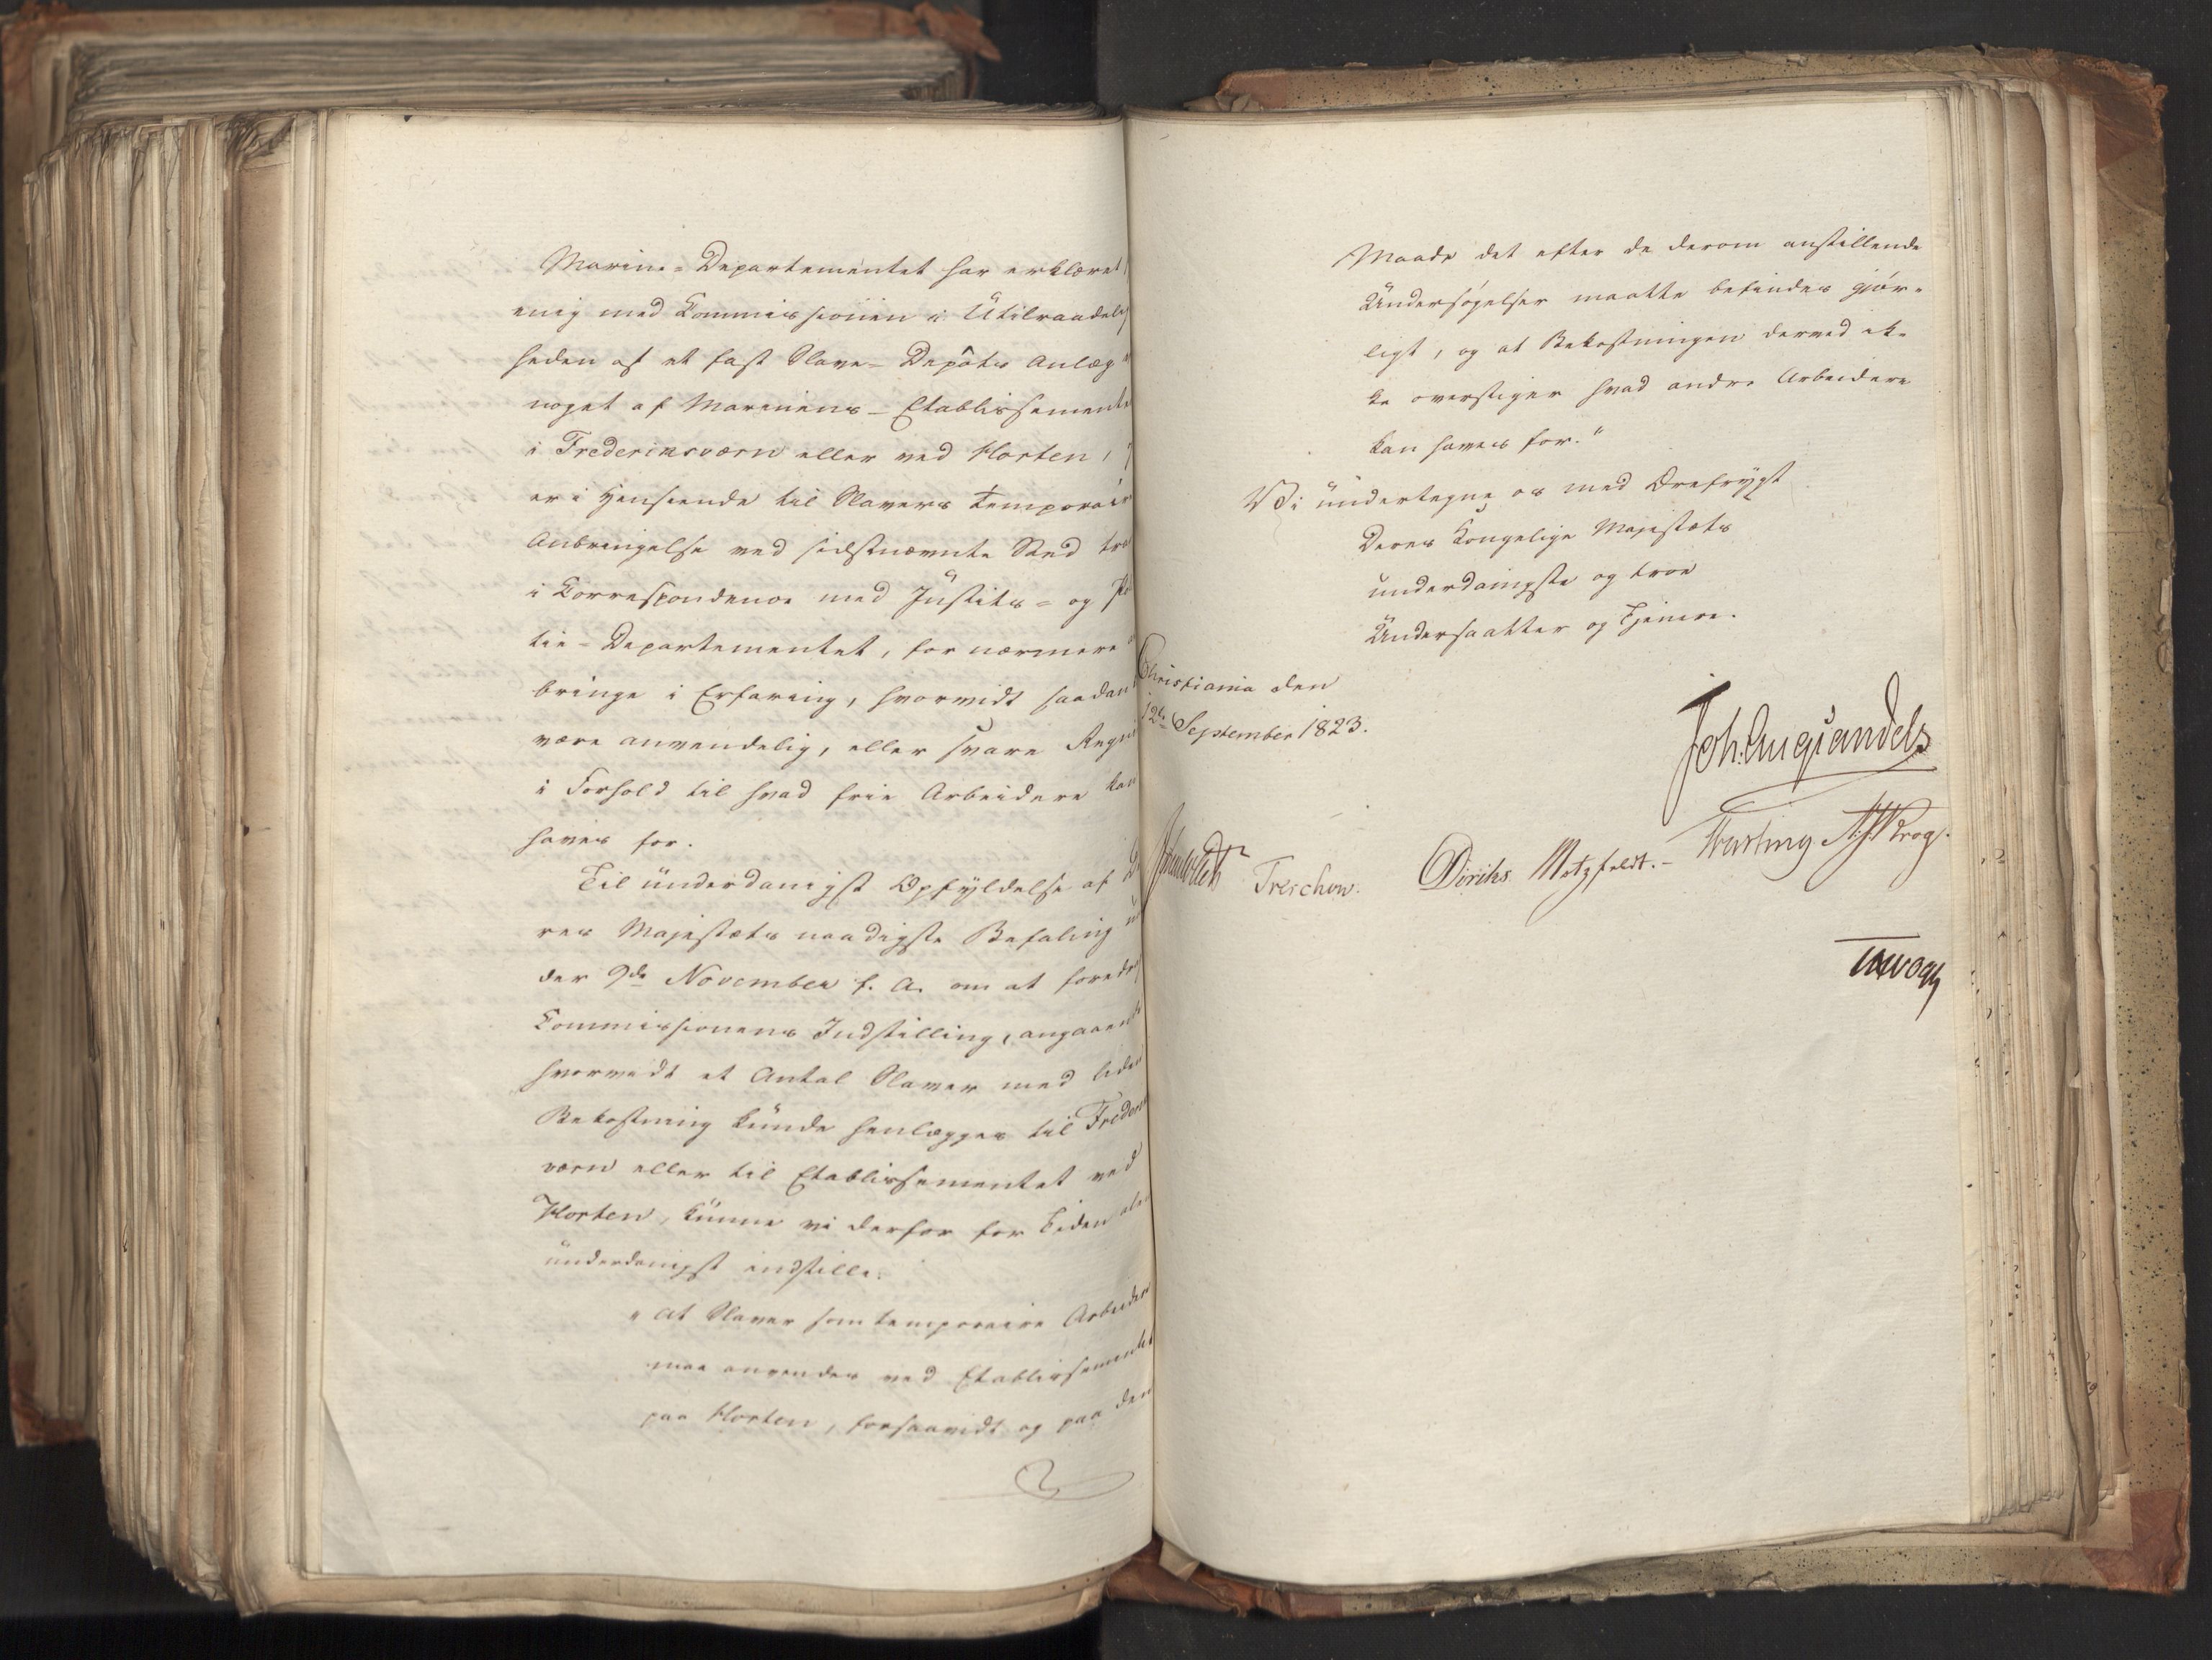 Marine-Departementet har erklæret
enig med Kommissionen i Utilraadelig
heden af et fast Slave-Depôts Anlæg
noget af Marinens-Etablissementer
i Fredriksværn eller ved Horten,
er i Henseende til Slavers temporair
Anbringelse ved sidstnævnte Sted traa
i Korrespondence med Justits- og Po
tie-Departementet, for nærmere
bringe i Erfaring, hvorvidt saadan
være anvendelig, eller svare Regni
i Forhold til hvad frie Arbeidere kan
haves for.
Til underdanigst Opfyldelse af De
res Majestæts naadigste Befaling un
der 9de November f. A. om at foredra
Kommissionens Indstilling, angaaende
hvorvidt et Antal Slaver med liden
Bekostning kunde henlægges til Fredriks
værn eller til Etablissementet ved
Horten, kunne vi derfor for Tiden
underdanigst indstille:
"At Slaver som temporaire Arbeidere
maa anvendes ved Etablissementet
paa Horten, forsaavidt og paa den
Maade det efter de derom anstillende
Undersøgelser maatte befindes gjør-
ligt, og at Bekostningen derved ik-
ke overstiger hvad andre Arbeidere
kan haves for."
Vi undertegne os med Ærefrygt
Deres Kongelige Majestæts
underdanigste og troe
Undersaatter og Tjenere.
Christiania den
12te September 1823.
Joh. Aug. Sandels
Sommerhielm Treschow. Diriks Motzfeldt.- Fasting Krog.
Vogt